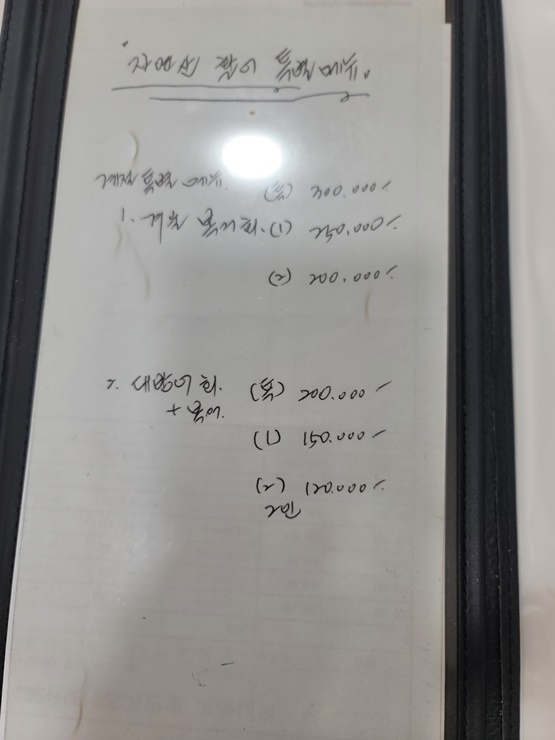 자연산 활어 특별메뉴.
계절 특별 메뉴. (특) 300.000
1. 겨울 복어회. (1) 250.000
(2) 200.000
2. 대방어 회. (특) 200.000
+ 복어.
(1) 150.000
(2) 120.000
2인